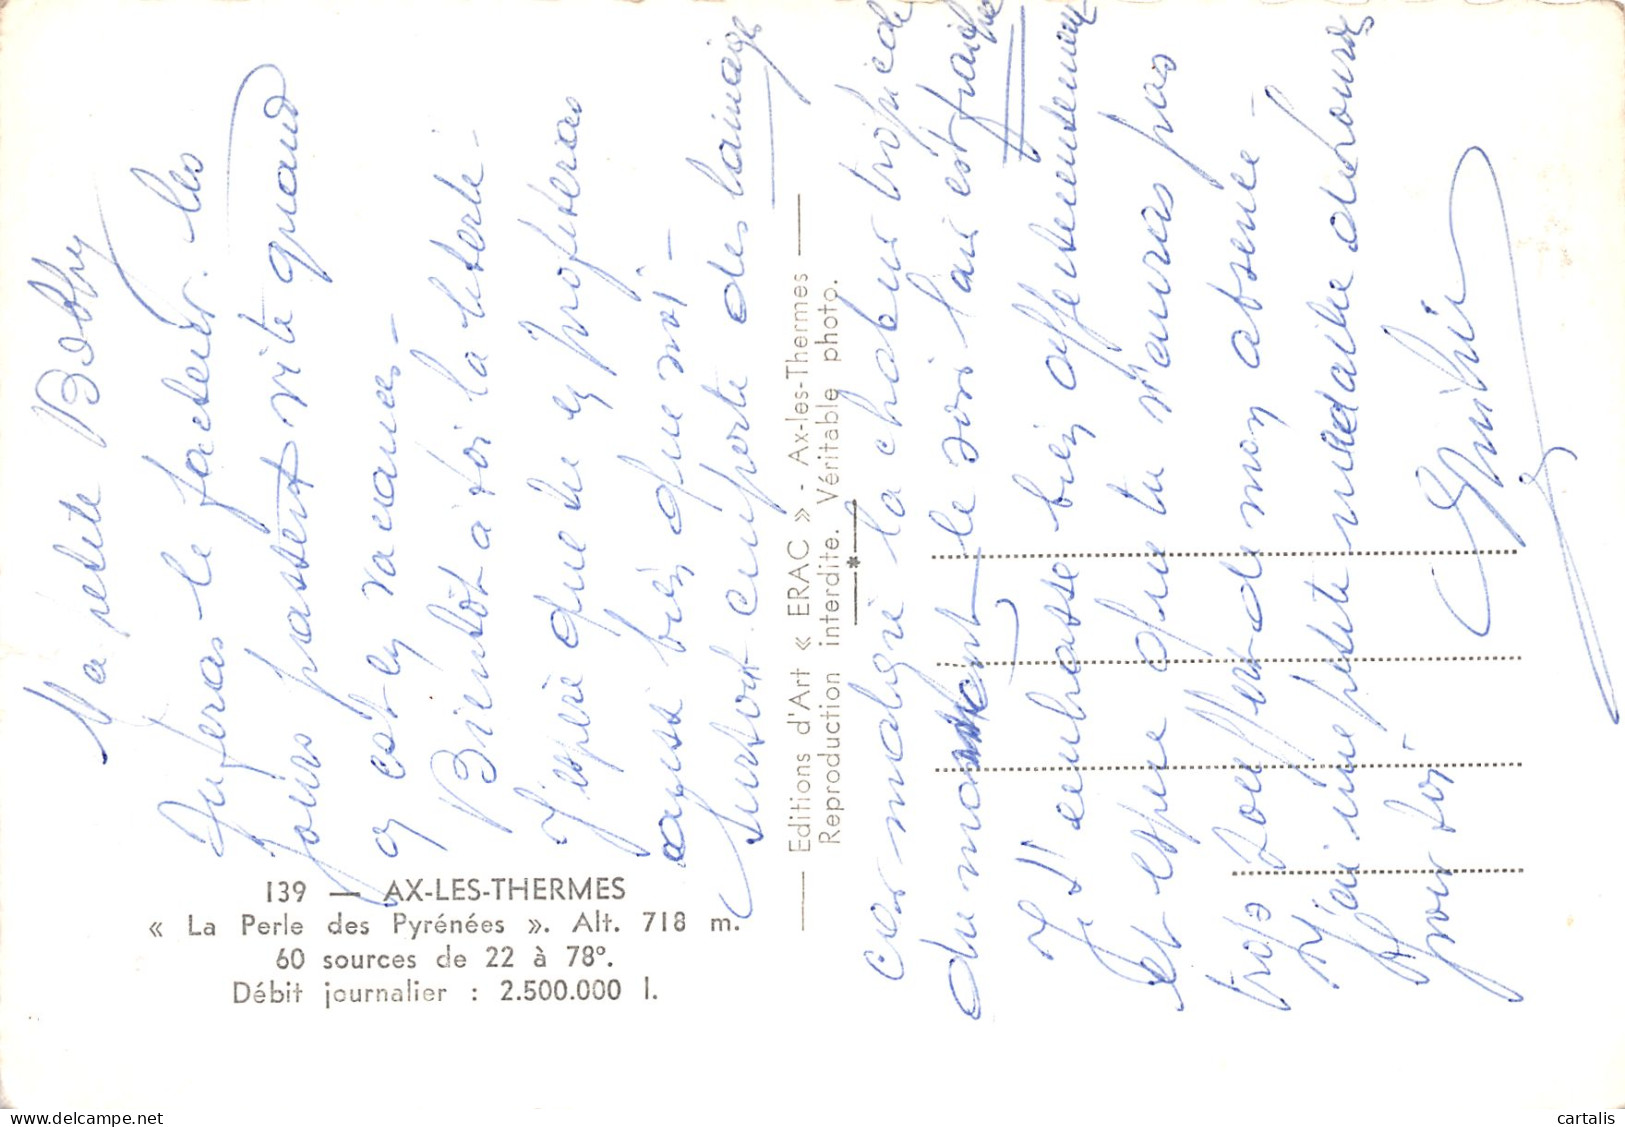 Ma petite Bobby
Tu feras le facteur. les
jours passent vite quand
on est en vacances -
Bientôt à toi la liberté -
J'espère que tu en profiteras
aussi bien que moi -
Surtout emporte des lainages
car malgré la chaleur tropicale
du moment le soir l'air est fraiche
Je t'embrasse bien affectueusement
et espère que tu n'auras pas
trop souffert de mon absence -
J'ai une petite médaille de Lourdes
pour toi -
139 — AX-LES-THERMES
« La Perle des Pyrénées ». Alt. 718 m.
60 sources de 22 à 78°.
Débit journalier : 2.500.000 l.
Editions d'Art « ERAC » - Ax-les-Thermes
Reproduction interdite. Véritable photo.
cartalis
delcampe.net